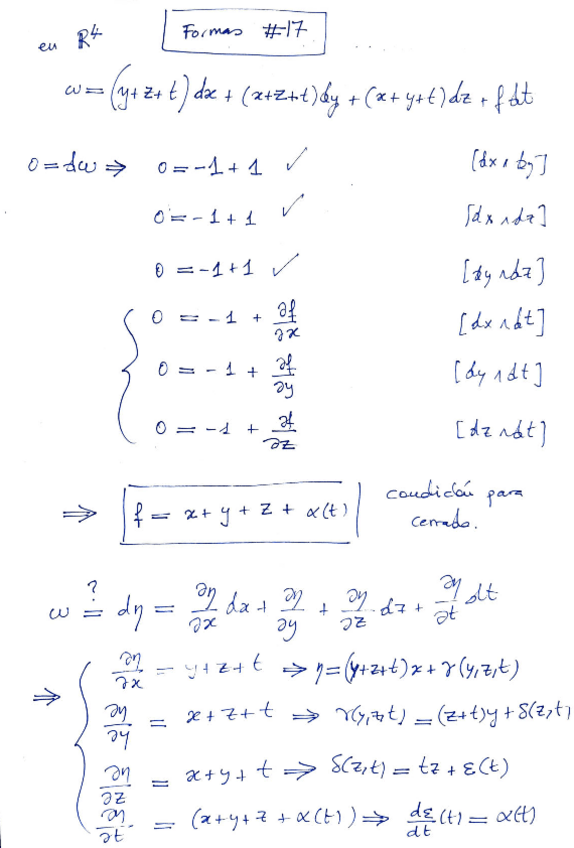 en ℝ⁴
Formas #17
ω = (y+z+t) dx + (x+z+t) dy + (x+y+t) dz + f dt
0 = dω ⇒ 0 = -1 + 1 ✓ [dx ∧ dy]
0 = -1 + 1 ✓ [dx ∧ dz]
0 = -1 + 1 ✓ [dy ∧ dz]
0 = -1 + ∂f/∂x [dx ∧ dt]
0 = -1 + ∂f/∂y [dy ∧ dt]
0 = -1 + ∂f/∂z [dz ∧ dt]
⇒ f = x + y + z + α(t) condición para
cerrado.
ω ?= dη = ∂η/∂x dx + ∂η/∂y + ∂η/∂z dz + ∂η/∂t dt
⇒ { ∂η/∂x = y + z + t ⇒ η = (y+z+t)x + γ(y,z,t)
∂η/∂y = x + z + t ⇒ γ(y,z,t) = (z+t)y + δ(z,t)
∂η/∂z = x + y + t ⇒ δ(z,t) = tz + ε(t)
∂η/∂t = (x + y + z + α(t)) ⇒ dε/dt (t) = α(t)